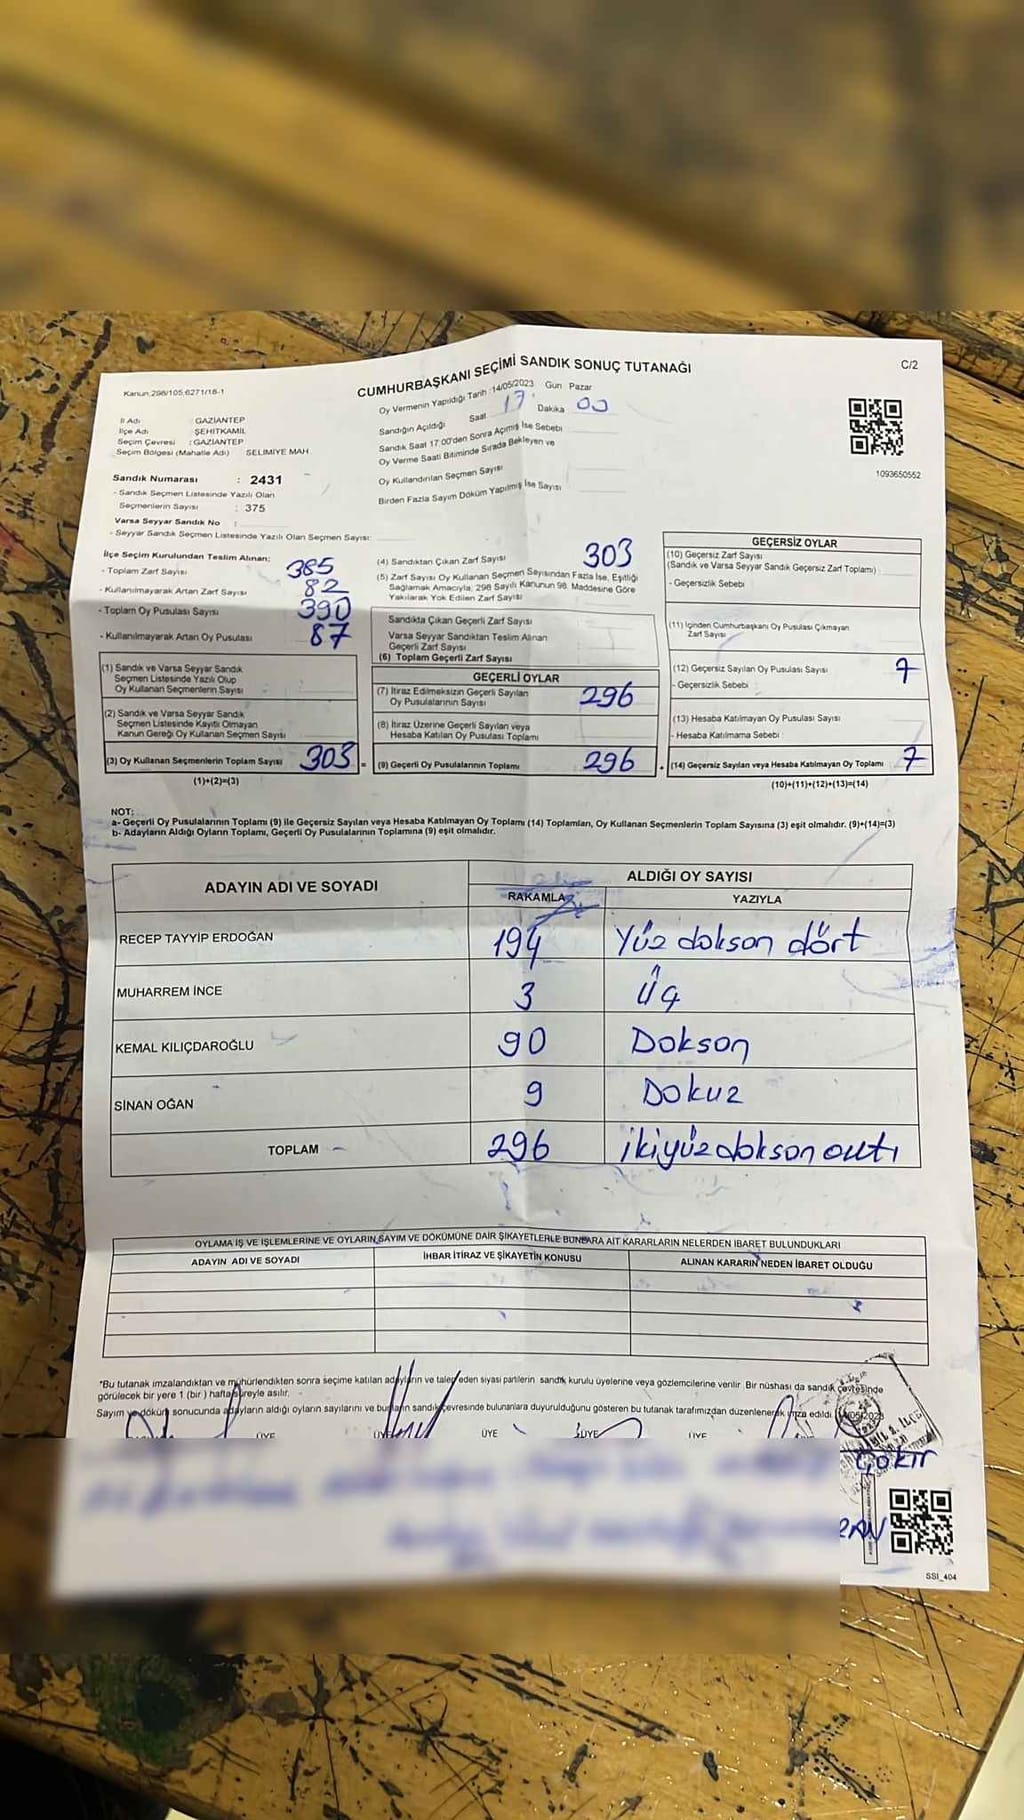 CUMHURBAŞKANI SEÇİMİ SANDIK SONUÇ TUTANAĞI
C/2
Kanun;298/105;6271/18-1
Oy Vermenin Yapıldığı Tarih :14/05/2023 Gün Pazar
Sandığın Açıldığı Saat 17 Dakika 00
Sandık Saat 17:00'den Sonra Açımış İse Sebebi
Oy Verme Saati Bitiminde Sırada Bekleyen ve
Oy Kullandırılan Seçmen Sayısı
Birden Fazla Sayım Döküm Yapılmış İse Sayısı
1093650552
İl Adı : GAZİANTEP
İlçe Adı : ŞEHİTKAMİL
Seçim Çevresi : GAZİANTEP
Seçim Bölgesi (Mahalle Adı) SELİMİYE MAH.
Sandık Numarası : 2431
- Sandık Seçmen Listesinde Yazılı Olan
Seçmenlerin Sayısı : 375
Varsa Seyyar Sandık No :
- Seyyar Sandık Seçmen Listesinde Yazılı Olan Seçmen Sayısı:
İlçe Seçim Kurulundan Teslim Alınan;
- Toplam Zarf Sayısı 385
- Kullanılmayarak Artan Zarf Sayısı 82
- Toplam Oy Pusulası Sayısı 390
- Kullanılmayarak Artan Oy Pusulası 87
(1) Sandık ve Varsa Seyyar Sandık
Seçmen Listesinde Yazılı Olup
Oy Kullanan Seçmenlerin Sayısı
(2) Sandık ve Varsa Seyyar Sandık
Seçmen Listesinde Kayıtlı Olmayan
Kanun Gereği Oy Kullanan Seçmen Sayısı
(3) Oy Kullanan Seçmenlerin Toplam Sayısı 303
(1)+(2)=(3)
(4) Sandıktan Çıkan Zarf Sayısı 303
(5) Zarf Sayısı Oy Kullanan Seçmen Sayısından Fazla İse, Eşitliği
Sağlamak Amacıyla; 298 Sayılı Kanunun 98. Maddesine Göre
Yakılarak Yok Edilen Zarf Sayısı
Sandıkta Çıkan Geçerli Zarf Sayısı
Varsa Seyyar Sandıktan Teslim Alınan
Geçerli Zarf Sayısı
(6) Toplam Geçerli Zarf Sayısı
GEÇERLİ OYLAR
(7) İtiraz Edilmeksizin Geçerli Sayılan
Oy Pusulalarının Sayısı 296
(8) İtiraz Üzerine Geçerli Sayılan veya
Hesaba Katılan Oy Pusulası Toplamı
= (9) Geçerli Oy Pusulalarının Toplamı 296
GEÇERSİZ OYLAR
(10) Geçersiz Zarf Sayısı
(Sandık ve Varsa Seyyar Sandık Geçersiz Zarf Toplamı)
- Geçersizlik Sebebi
(11) İçinden Cumhurbaşkanı Oy Pusulası Çıkmayan
Zarf Sayısı
(12) Geçersiz Sayılan Oy Pusulası Sayısı 7
- Geçersizlik Sebebi
(13) Hesaba Katılmayan Oy Pusulası Sayısı
- Hesaba Katılmama Sebebi
+ (14) Geçersiz Sayılan veya Hesaba Katılmayan Oy Toplamı 7
(10)+(11)+(12)+(13)=(14)
NOT:
a- Geçerli Oy Pusulalarının Toplamı (9) ile Geçersiz Sayılan veya Hesaba Katılmayan Oy Toplamı (14) Toplamları, Oy Kullanan Seçmenlerin Toplam Sayısına (3) eşit olmalıdır. (9)+(14)=(3)
b- Adayların Aldığı Oyların Toplamı, Geçerli Oy Pusulalarının Toplamına (9) eşit olmalıdır.
ADAYIN ADI VE SOYADI
ALDIĞI OY SAYISI
RAKAMLA
YAZIYLA
RECEP TAYYİP ERDOĞAN 194 Yüz dokson dört
MUHARREM İNCE 3 Üç
KEMAL KILIÇDAROĞLU 90 Dokson
SİNAN OĞAN 9 Dokuz
TOPLAM 296 ikiyüz dokson outı
OYLAMA İŞ VE İŞLEMLERİNE VE OYLARIN SAYIM VE DÖKÜMÜNE DAİR ŞİKAYETLERLE BUNLARA AİT KARARLARIN NELERDEN İBARET BULUNDUKLARI
ADAYIN ADI VE SOYADI
İHBAR İTİRAZ VE ŞİKAYETİN KONUSU
ALINAN KARARIN NEDEN İBARET OLDUĞU
*Bu tutanak imzalandıktan ve mühürlendikten sonra seçime katılan adayların ve talep eden siyasi partilerin sandık kurulu üyelerine veya gözlemcilerine verilir. Bir nüshası da sandık çevresinde
görülecek bir yere 1 (bir ) hafta süreyle asılır.
Sayım ve döküm sonucunda adayların aldığı oyların sayılarını ve bunların sandık çevresinde bulunanlara duyurulduğunu gösteren bu tutanak tarafımızdan düzenlenerek imza edildi. 14/05/2023
ÜYE ÜYE ÜYE ÜYE ÜYE
SSI_404